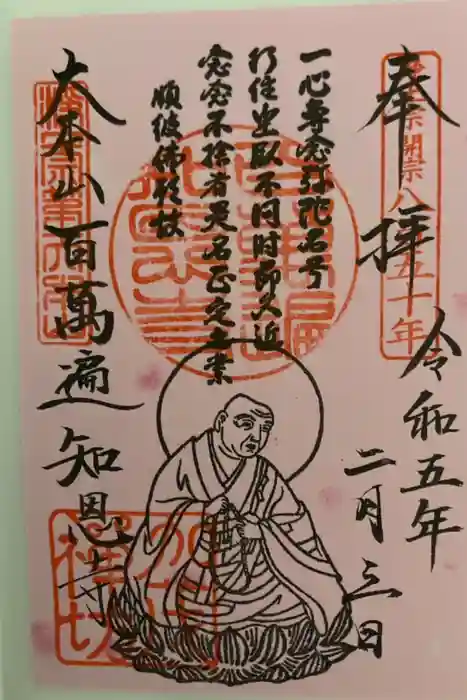 浄土宗開宗八百五十年
奉拝
令和五年
二月三日
一心専念弥陀名号
行住坐臥不問時節久近
念念不捨者是名正定之業
順彼佛願故
大本山百萬遍知恩寺